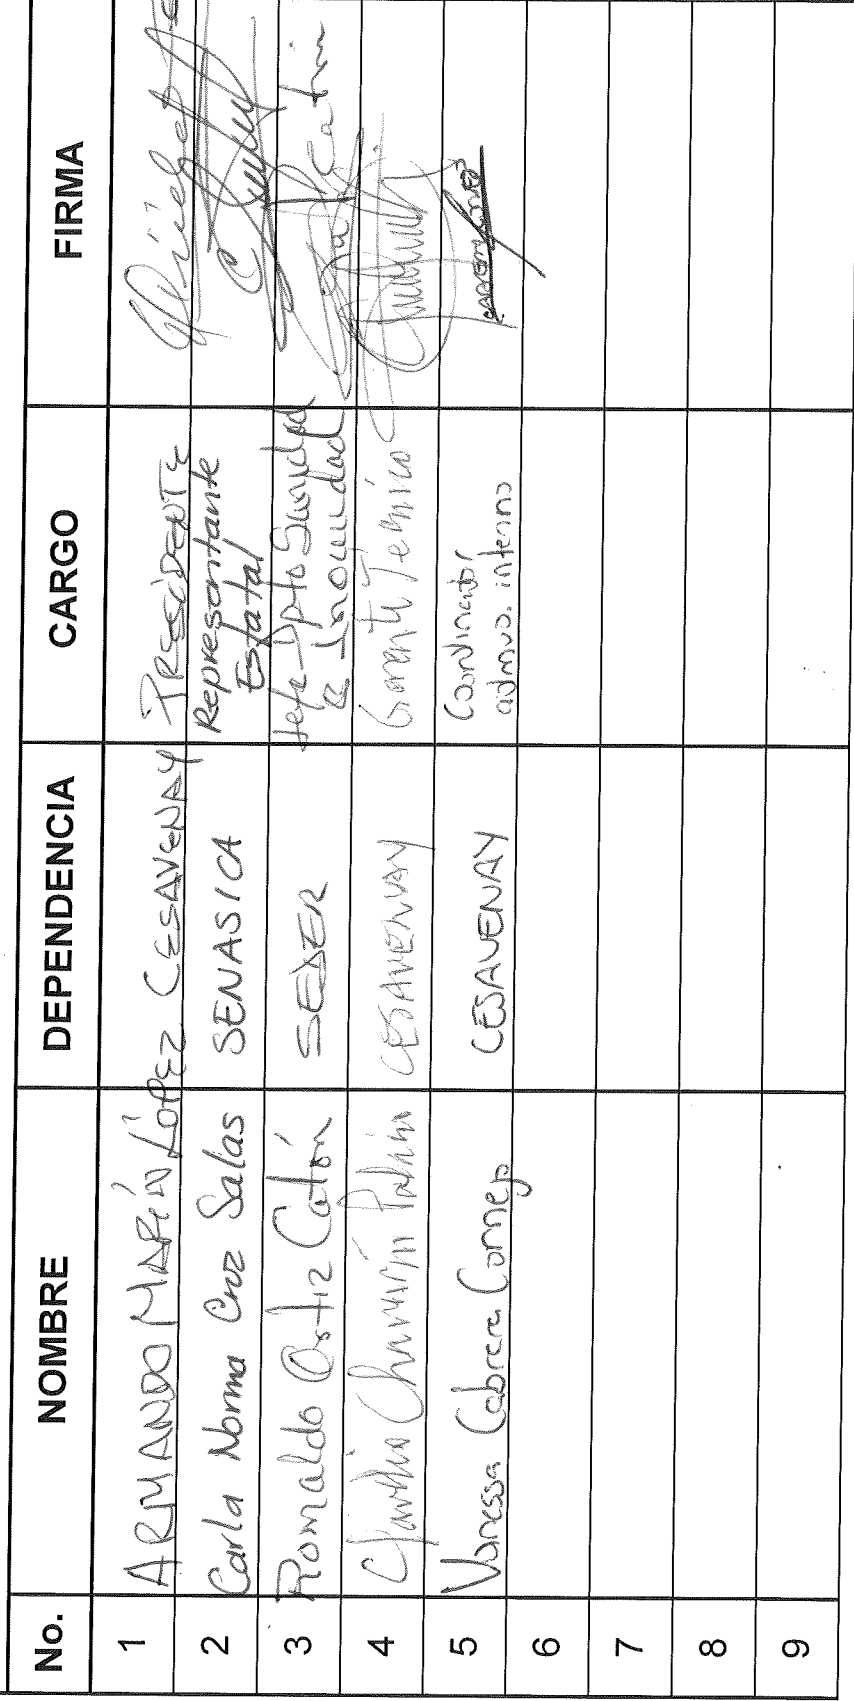 No. NOMBRE DEPENDENCIA CARGO FIRMA
1 ARMANDO MARÍN LÓPEZ CESAVENAY PRESIDENTE
2 Carla Norma Cruz Salas SENASICA Representante
Estatal
3 Romaldo Ortiz Catón SEDER Jefe Dpto Sanidad
e Inocuidad
4 Claudia Chavarín CESAVENAY Gerente Técnico
5 Vanessa Cabrera Cornejo CESAVENAY Coordinador
admvo. interno
6
7
8
9